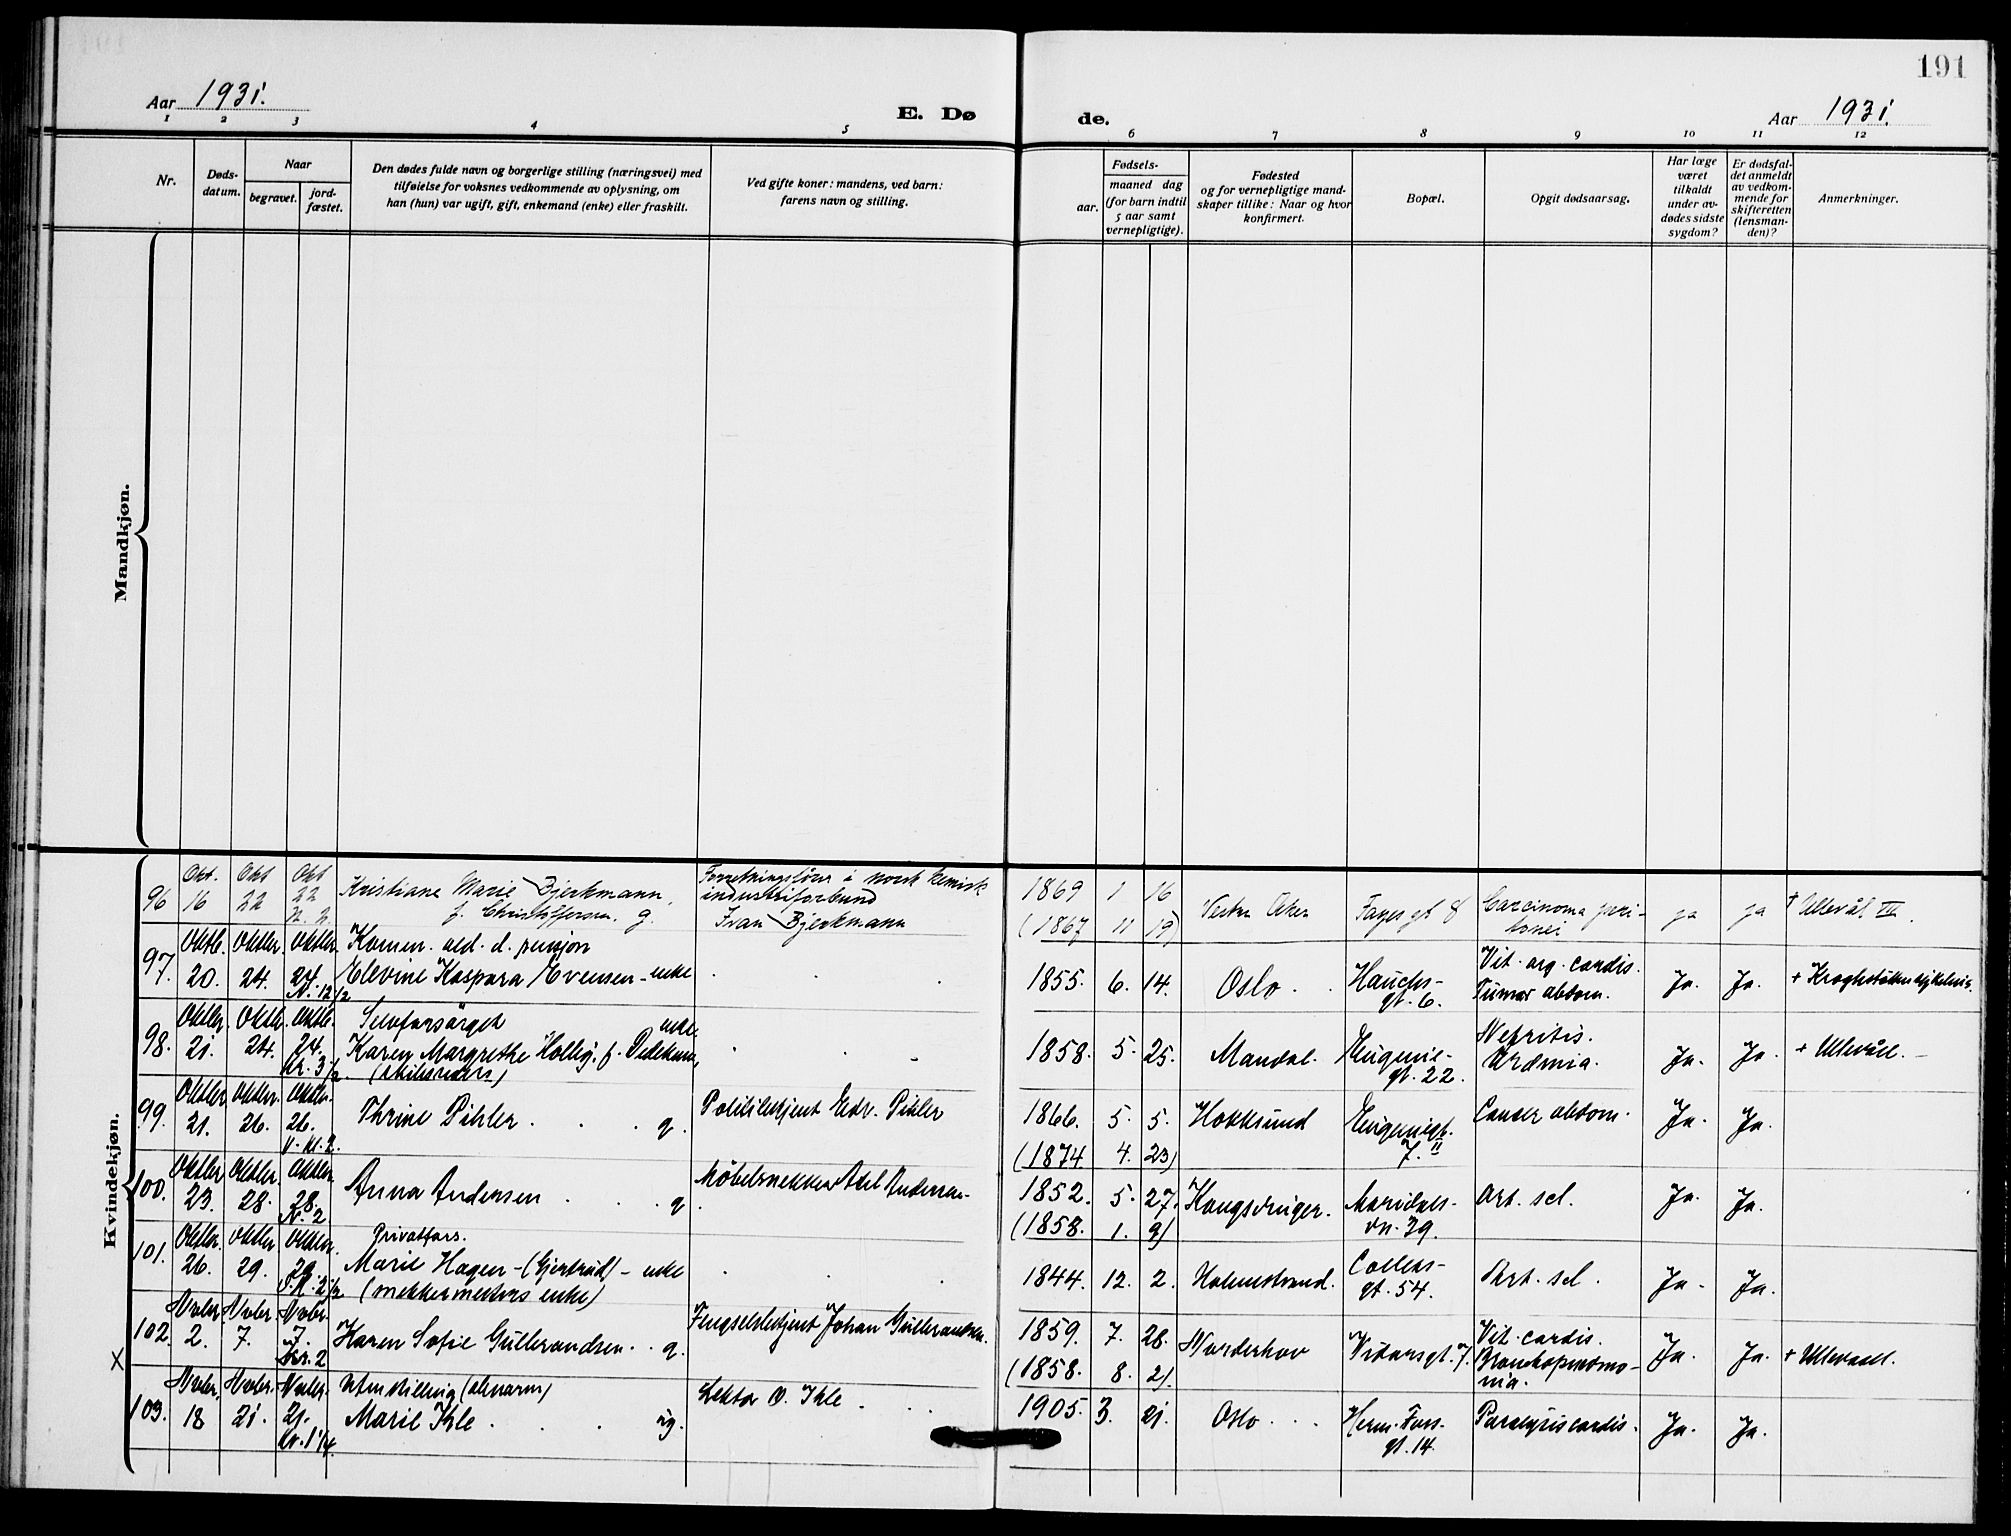 191
Aar 1931.
E. Dø
de.
Aar 1931.
1 2 3 4 5 6 7 8 9 10 11 12
Nr.
Døds-
datum.
Naar
begravet.
jord-
fæstet.
Den dødes fulde navn og borgerlige stilling (næringsvei) med
tilføielse for voksnes vedkommende av oplysning, om
han (hun) var ugift, gift, enkemand (enke) eller fraskilt.
Ved gifte koner: mandens, ved barn:
farens navn og stilling.
Fødsels-
aar.
maaned dag
(for barn indtil
5 aar samt
vernepligtige).
Fødested
og for vernepligtige mand-
skaper tillike: Naar og hvor
konfirmert.
Bopæl.
Opgit dødsaarsag.
Har læge
været
tilkaldt
under av-
dødes sidste
sygdom?
Er dødsfal-
det anmeldt
av vedkom-
mende for
skifteretten
(lensman-
den)?
Anmerkninger.
Mandkjøn.
Kvindekjøn.
96 Okt. 16 Okt 22 Okt 22
Kristiane Marie Bjerkmann,
f. Christoffersen. g.
Forretningsfører i norsk kemisk
industriforbund
Ivan Bjerkmann
1869 1 16
(1867 11 19)
Vestre Aker Fayes gt 8 Carcinoma peri-
tonei
ja ja † Ullevål III.
97. Oktbr. 20. Oktbr. 24. Oktbr. 24. Kl. 12 1/2
Komm. ald. d. pensjon
Elevine Kaspara Evensen - enke
1855. 6. 14. Oslo. Hauchs-
gt. 6.
Vit. org. cordis.
Tumor abdom.
Ja. Ja. + Kroghstøtten sykehus.
98. Oktbr. 21. Oktbr. 24. Oktbr. 24. Kl. 3 1/2
Selvforsørget enke
Karen Margrethe Hollig. f. Dedekam,
1858. 5. 25. Mandal. Eugenie-
gt. 22.
Nefritis.
Urämia.
Ja. Ja. + Ullevåll.
99. Oktbr. 21. Oktbr. 26. Oktbr. 26. Kl. 2.
Thrine Pihler. g.
Politibetjent Edv. Pihler
1866. 5. 5.
(1874 4. 23)
Hokksund Eugeniegt.
7. II
Cancer abdom. Ja. Ja.
100. Oktbr. 23. Oktbr. 28. Oktbr. 28. Kl. 2
Anna Andersen g.
Møbelsnekker Adel Andersen.
1852. 5. 27.
(1858. 1. 9)
Kongsvinger. Maridals-
vn. 39.
Art. scl. Ja. Ja.
101. Oktbr. 26. Oktbr. 29. Oktbr. 29. Kl. 2 1/2
Privatfors.
Marie Hagen - (Gjertrud) - enke
(snekkermesters enke)
1844. 12. 2. Holmestrand. Colletts-
gt. 54.
Art. scl. Ja. Ja.
102. X Novbr. 2. Novbr. 7. Novbr. 7. Kr. 2
Karen Sofie Gulbrandsen. g.
Fengselsbetjent Johan Gulbrandsen.
1859. 7. 28.
(1858. 8. 2).
Norderhov Vidarsgt. 7.
Vit. cordis.
Bronkopnömo-
nia.
Ja. Ja. + Ullevaal.
103. Novbr. 18 Novbr. 21. Novbr. 21. Kr. 1 1/4.
Uten stilling
Marie Ihle. ug.
Lektor O. Ihle.
1905. 3. 21. Oslo. Herm. Foss-
gt. 14.
Paralysis cordis. Ja. Ja.